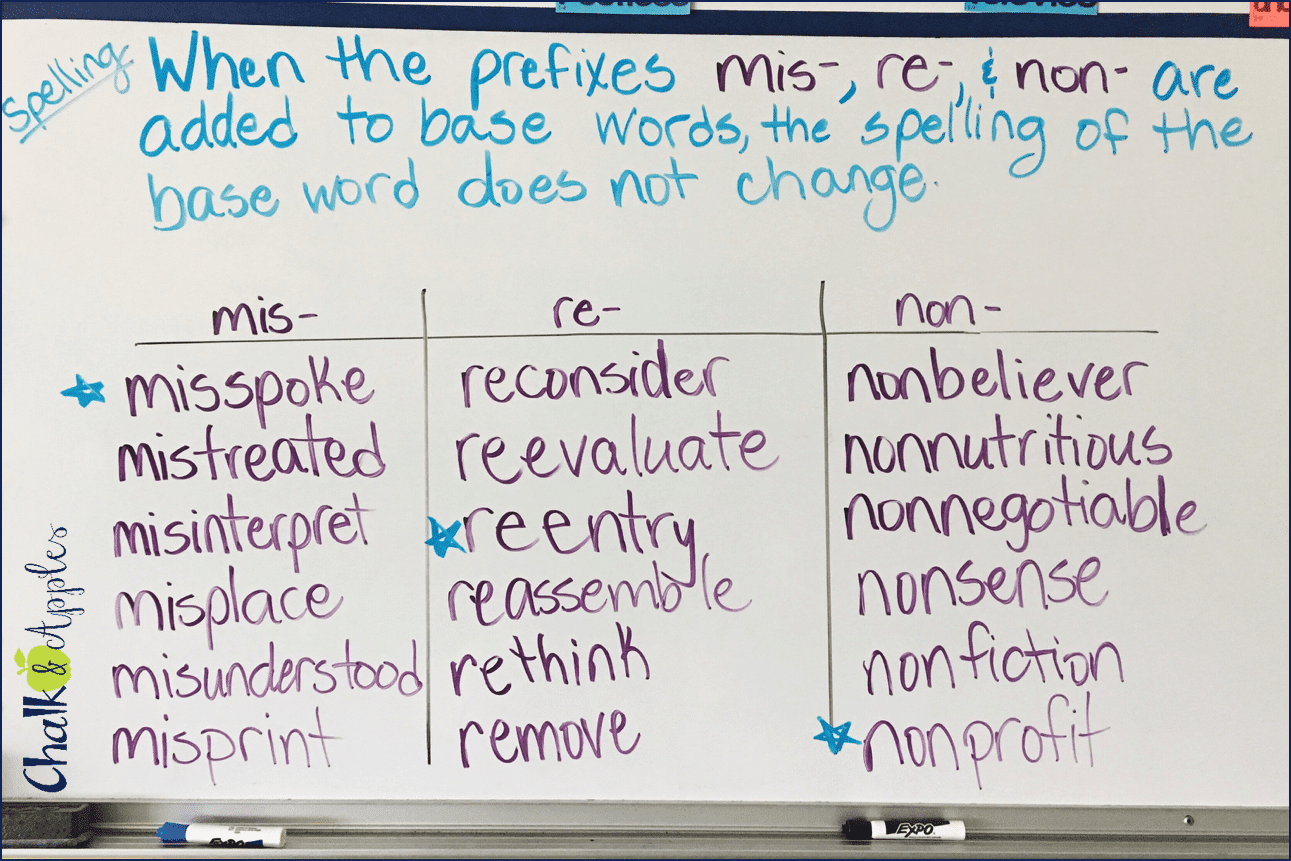 Spelling
When the prefixes mis-, re-, & non- are
added to base words, the spelling of the
base word does not change.
mis- re- non-
misspoke reconsider nonbeliever
mistreated reevaluate nonnutritious
misinterpret reentry nonnegotiable
misplace reassemble nonsense
misunderstood rethink nonfiction
misprint remove nonprofit
Chalk & Apples
EXPO EXPO